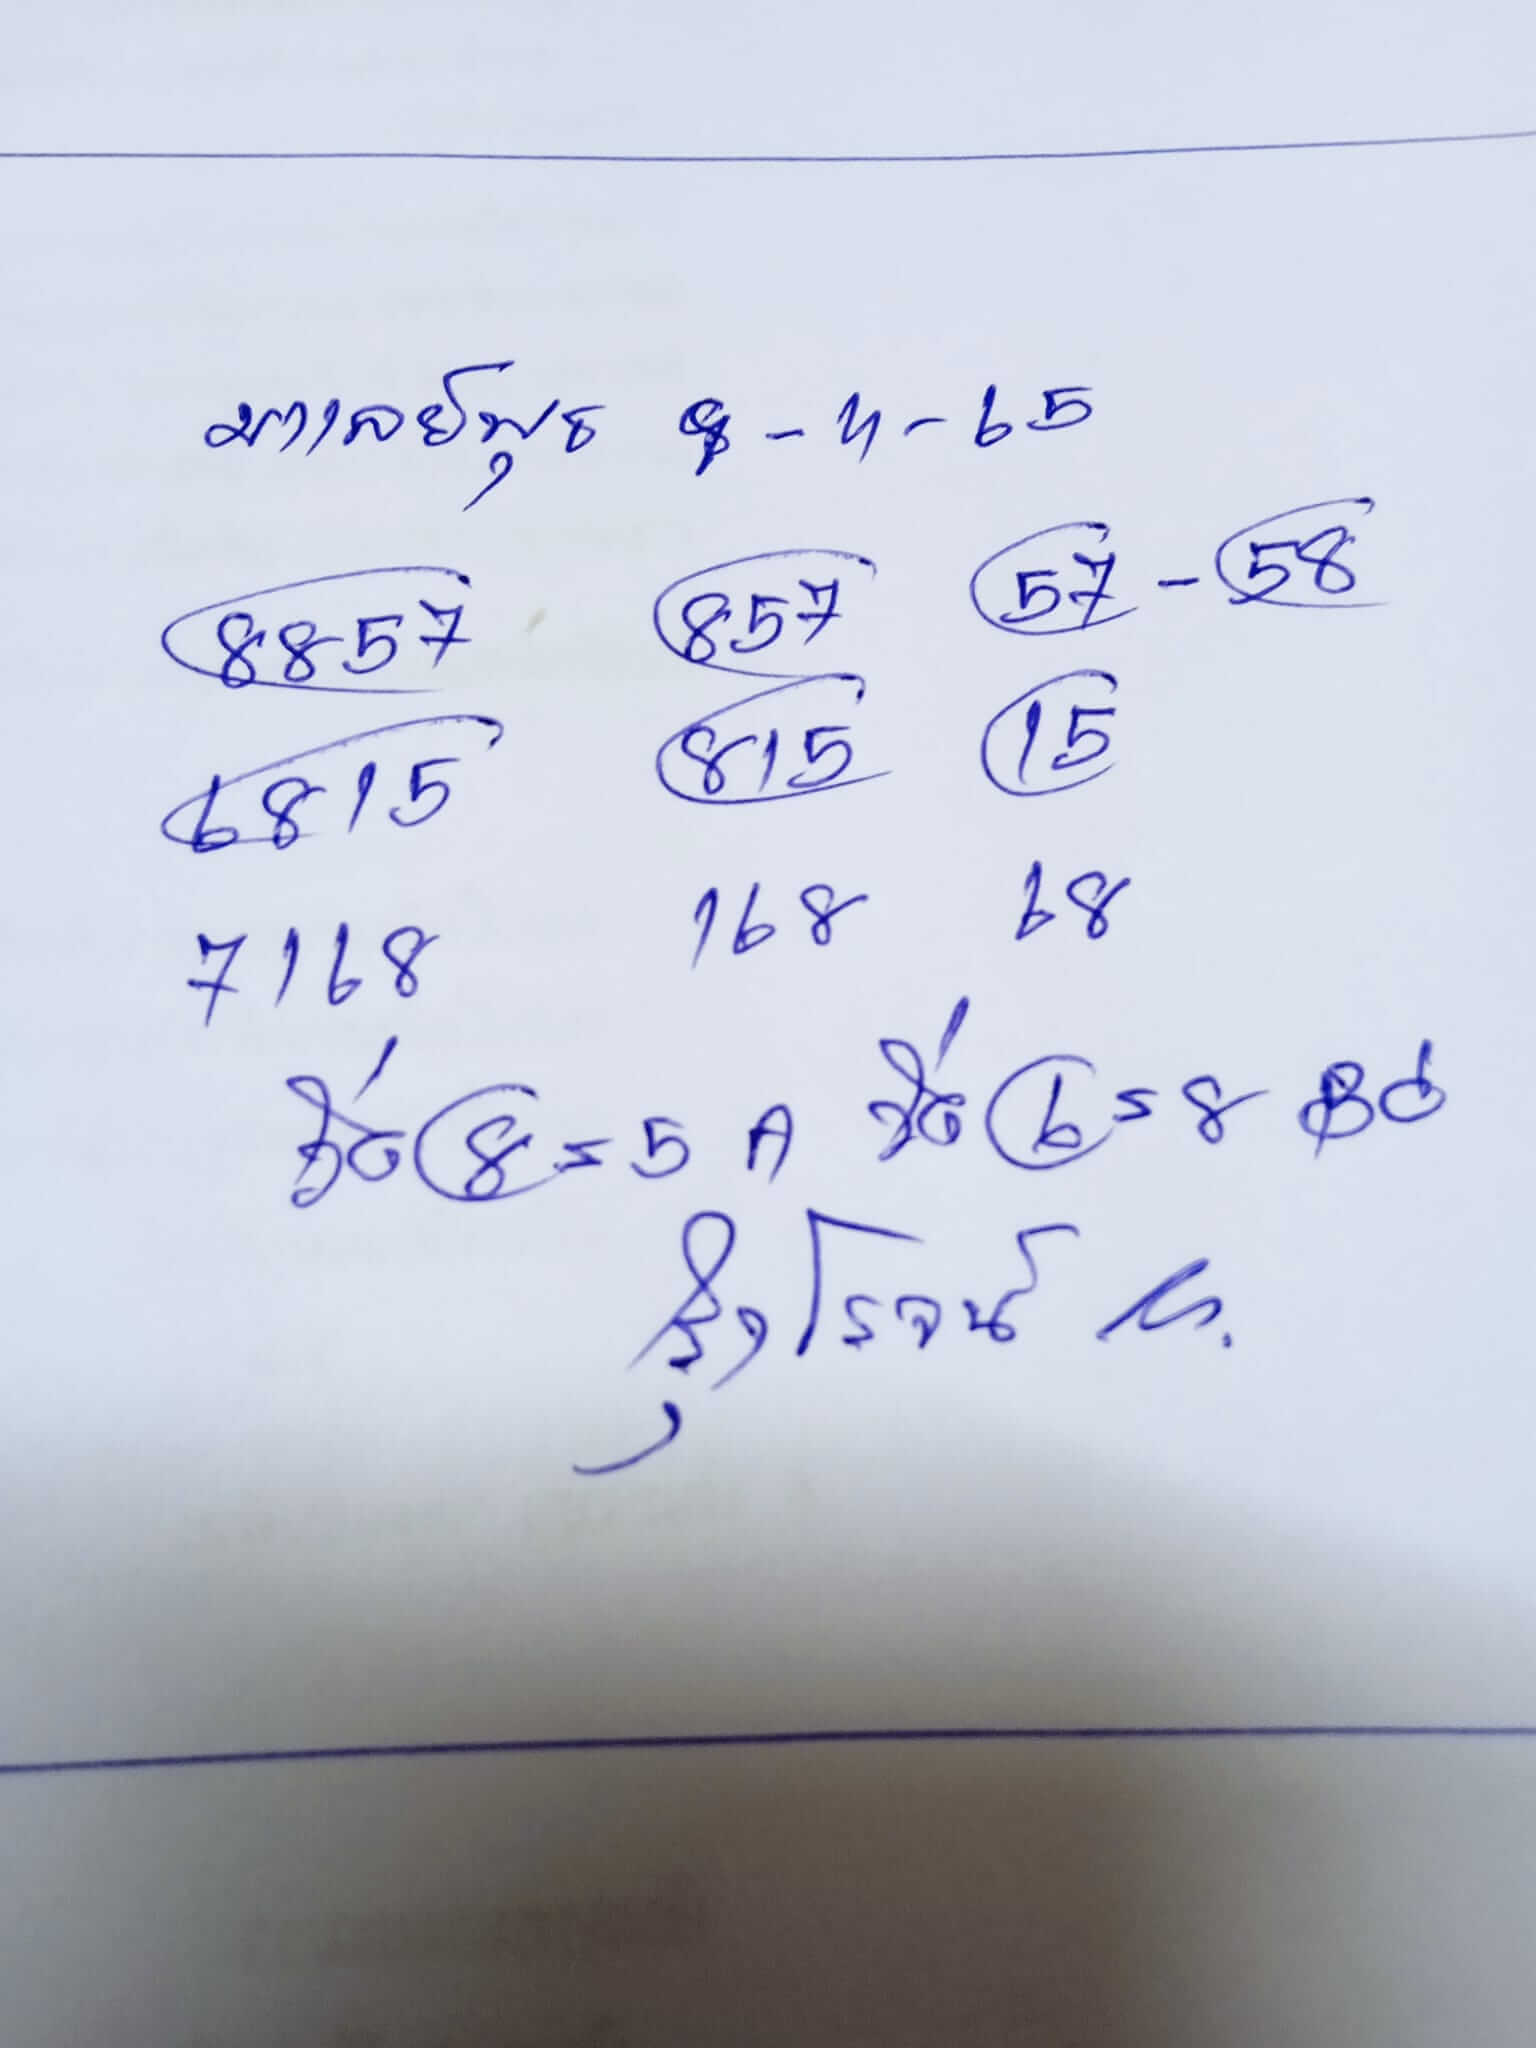 มาเลย์พุธ 8-4-65
8857 857 57-58
6815 815 15
7168 168 68
วิ่ง 8=5 A วิ่ง 6=8
รุ่งโรจน์